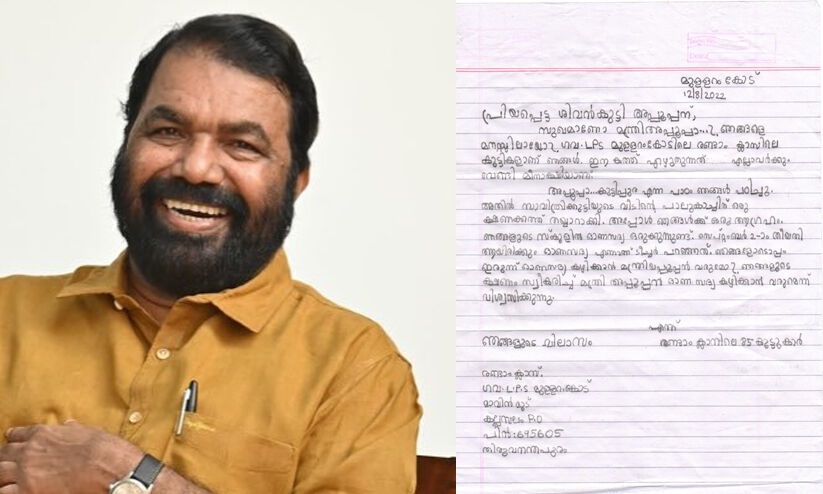 മുളളറംകോട്
12/8/2022
പ്രിയപ്പെട്ട ശിവൻകുട്ടി അപ്പൂപ്പന്,
സുഖമാണോ മന്ത്രിഅപ്പൂപ്പാ...? ഞങ്ങളെ
മനസ്സിലായോ? ഗവ: LPS മുളളറംകോടിലെ രണ്ടാം ക്ലാസിലെ
കുട്ടികളാണ് ഞങ്ങൾ. ഈ കത്ത് എഴുതുന്നത് എല്ലാവർക്കും
വേണ്ടി മീനാക്ഷിയാണ്.
അപ്പൂപ്പാ... കുട്ടിപ്പുര എന്ന പാഠം ഞങ്ങൾ പഠിച്ചു.
അതിൽ സാവിത്രിക്കുട്ടിയുടെ വീടിന്റെ പാലുകാച്ചിന് ഒരു
ക്ഷണക്കത്ത് തയ്യാറാക്കി. അപ്പോൾ ഞങ്ങൾക്ക് ഒരു ആഗ്രഹം.
ഞങ്ങളുടെ സ്കൂളിൽ ഓണസദ്യ ഒരുക്കുന്നുണ്ട്. സെപ്റ്റംബർ 2-ാം തീയതി
ആയിരിക്കും ഓണസദ്യ എന്നാണ് ടീച്ചർ പറഞ്ഞത്. ഞങ്ങളോടൊപ്പം
ഇരുന്ന് ഓണസദ്യ കഴിക്കാൻ മന്ത്രിയപ്പൂപ്പൻ വരുമോ? ഞങ്ങളുടെ
ക്ഷണം സ്വീകരിച്ച് മന്ത്രി അപ്പൂപ്പൻ ഓണ സദ്യ കഴിക്കാൻ വരുമെന്ന്
വിശ്വസിക്കുന്നു.
എന്ന്
ഞങ്ങളുടെ വിലാസം രണ്ടാം ക്ലാസിലെ 85 കൂട്ടുകാർ
രണ്ടാം ക്ലാസ്.
ഗവ: L.P.S മുളളറംകോട്
മാവിൻമൂട്
കല്ലമ്പലം P.O
പിൻ:695605
തിരുവനന്തപുരം